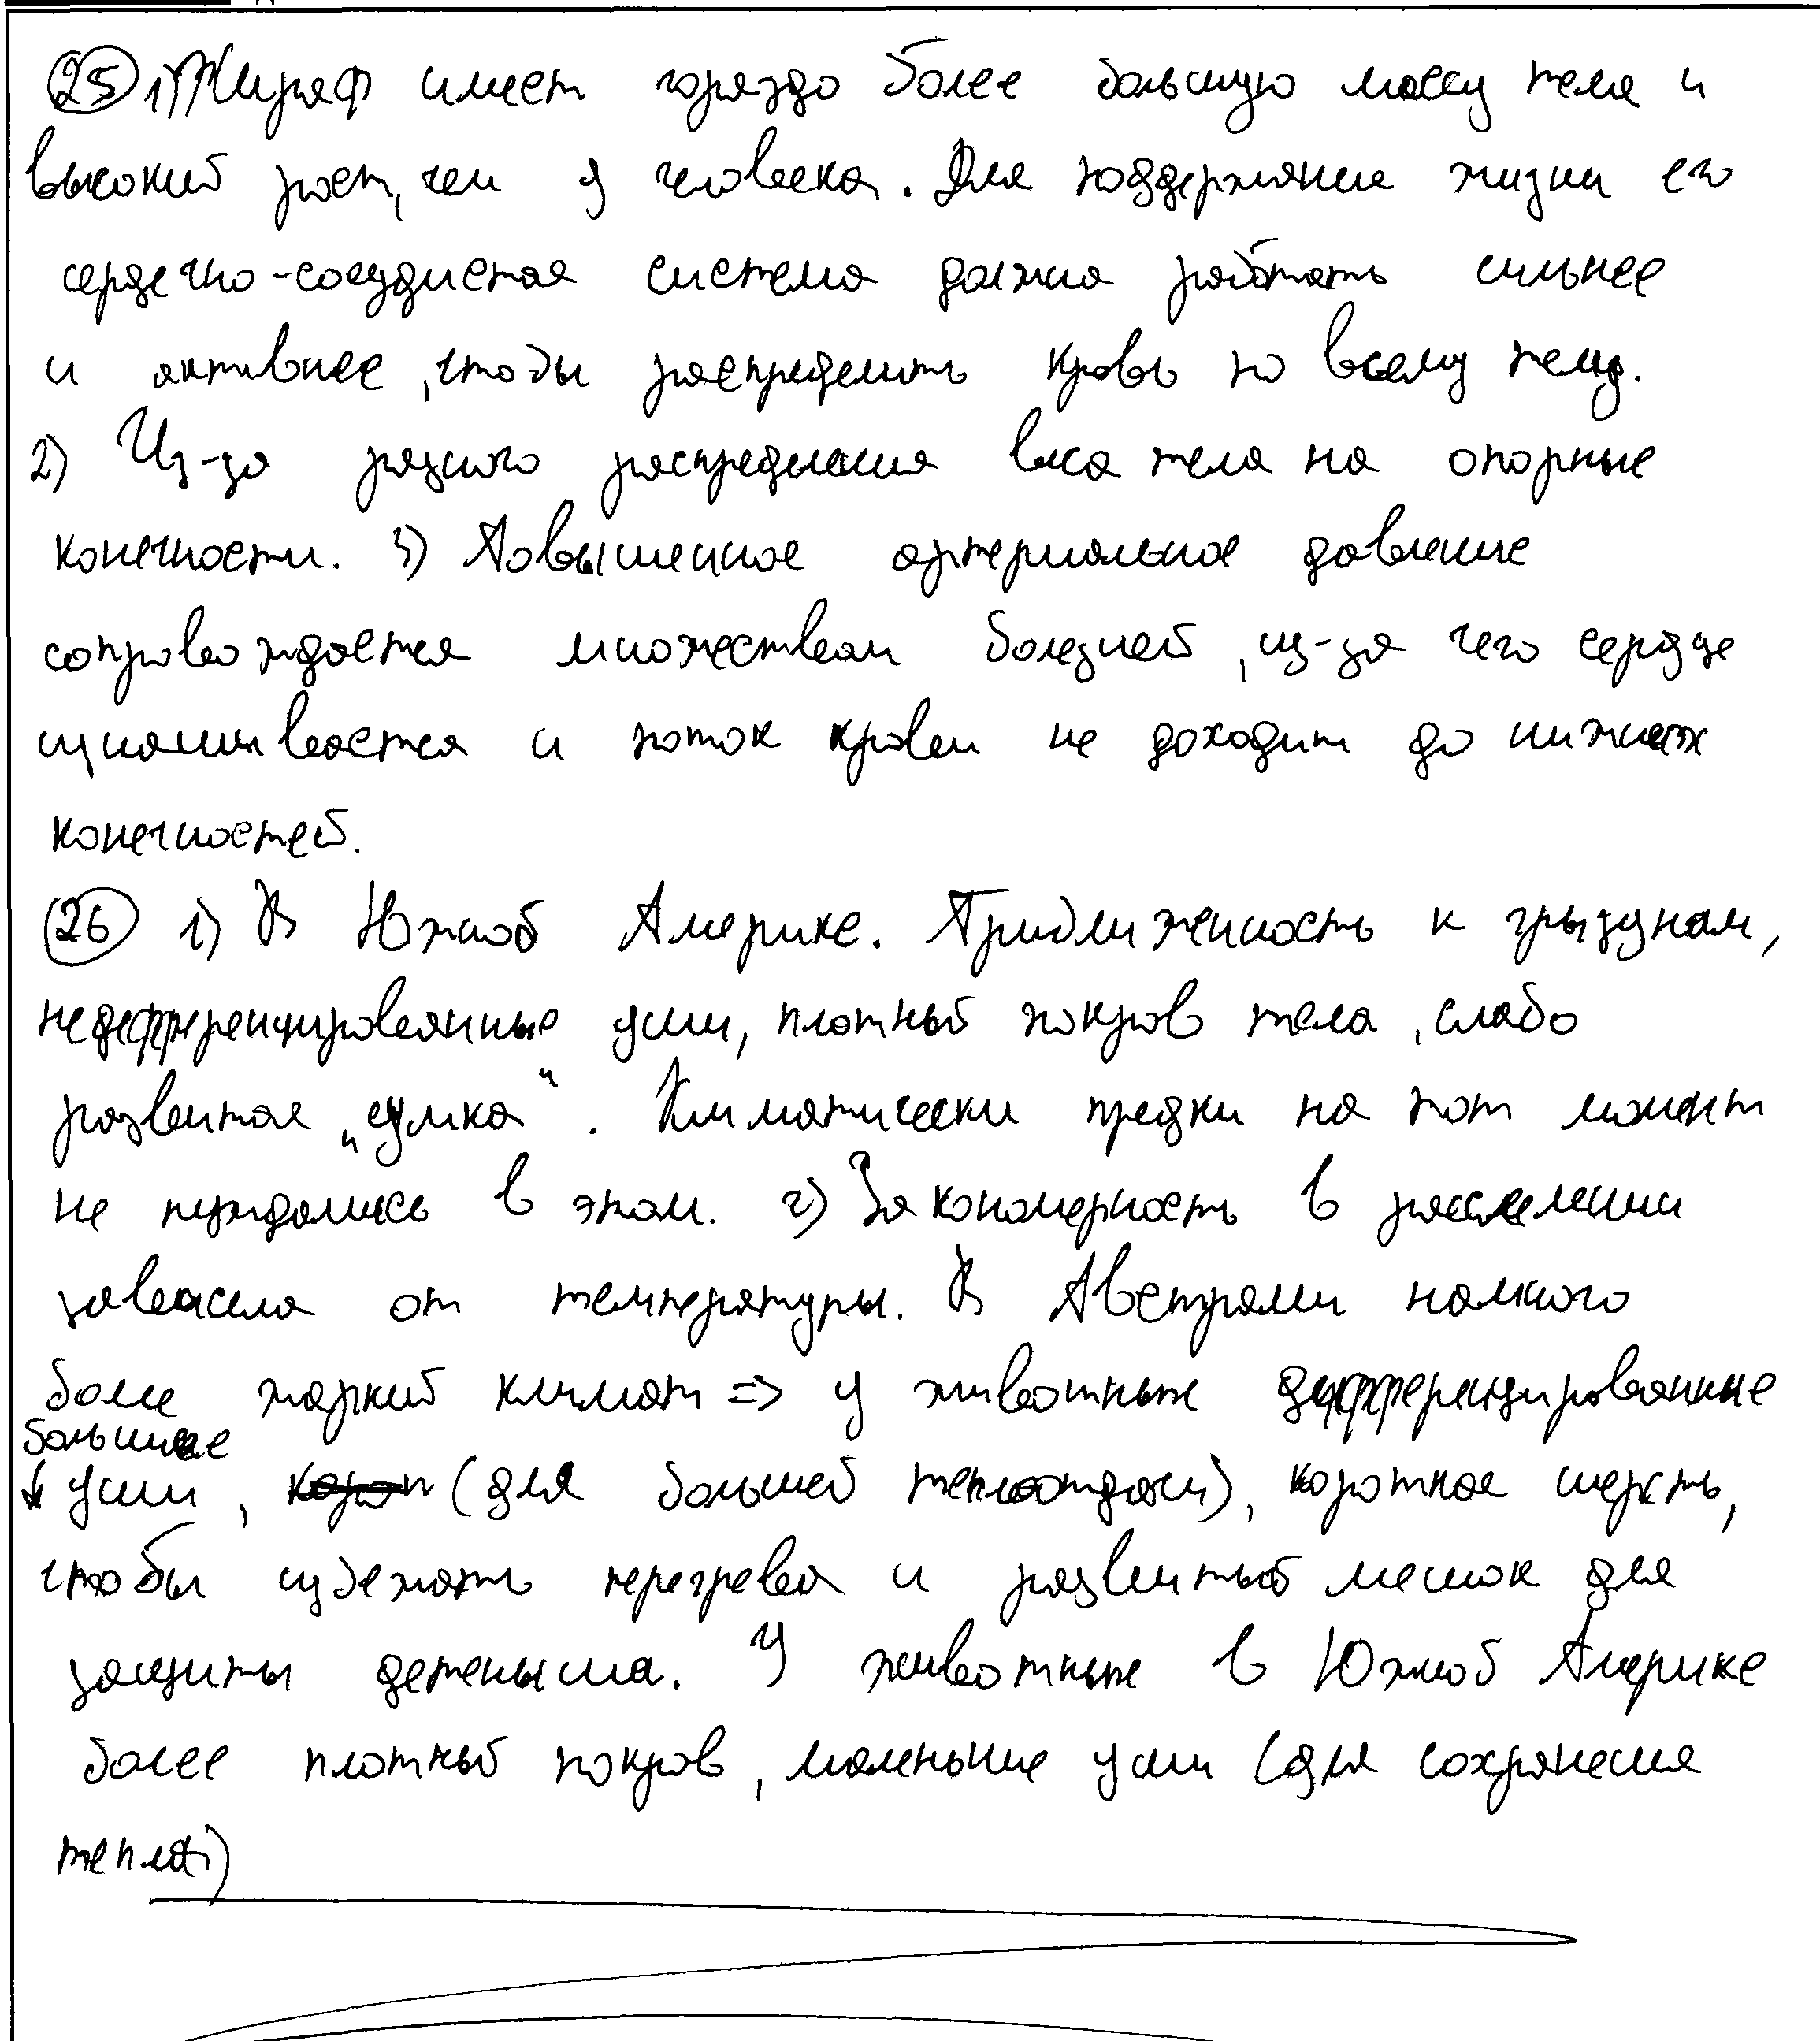 25 1) Жираф имеет гораздо более большую массу тела и
высокий рост, чем у человека. Для поддержание жизни его
сердечно-сосудистая система должна работать сильнее
и активнее, чтобы распределить кровь по всему телу.
2) Из-за разного распределения веса тела на опорные
конечности. 3) Повышенное артериальное давление
сопровождается множеством болезней, из-за чего сердце
изнашивается и поток крови не доходит до нижних
конечностей.
26 1) В Южной Америке. Приближенность к грызунам,
недефференцированные уши, плотный покров тела, слабо
развитая „сумка“. Климатически предки на тот момент
не нуждались в этом. 2) Закономерность в расселении
зависела от температуры. В Австралии намного
более жаркий климат => у животных дифференцированные
большие
уши, (для большей теплоотдачи), короткая шерсть,
чтобы избежать перегрева и развитый мешок для
защиты детеныша. У животных в Южной Америке
более плотный покров, маленькие уши (для сохранения
тепла)